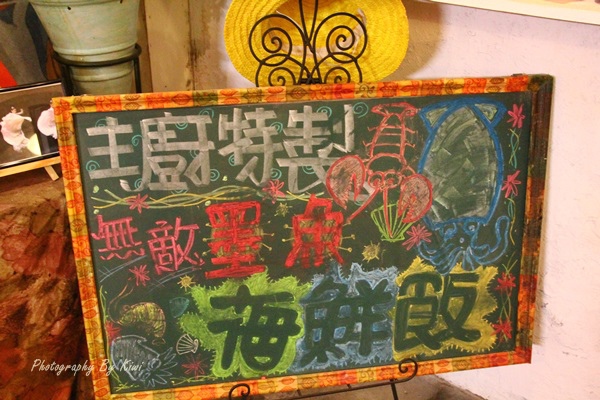 主廚特製
無敵墨魚
海鮮飯
Photography By Kiwi